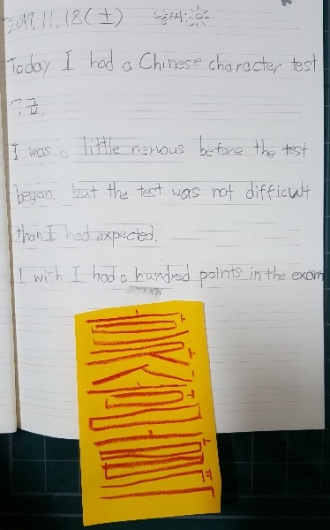 2017.11.18(土) 날씨:
Today I had a Chinese character test.
I was a little nervous before the test
began, but the test was not difficult
than I had expected.
I wish I had a hundred points in the exam